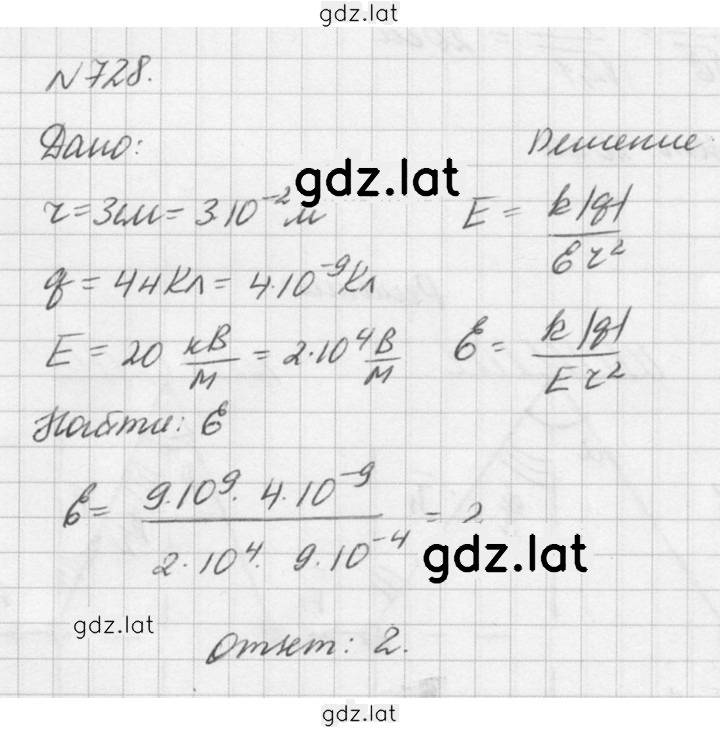 gdz.lat
N728.
Дано:
Решение
gdz.lat
r = 3см = 3·10⁻² м
E = k|q| / εr²
q = 4нКл = 4·10⁻⁹ Кл
E = 20 кВ/м = 2·10⁴ В/м
ε = k|q| / Er²
Найти: ε
ε = 9·10⁹ · 4·10⁻⁹ / 2·10⁴ · 9·10⁻⁴ = 2
gdz.lat
gdz.lat
Ответ: 2.
gdz.lat